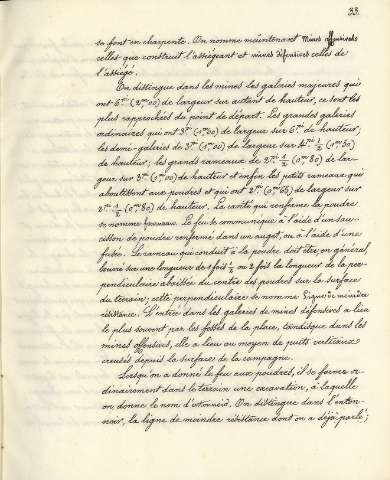 33.
se font en charpente. On nomme maintenant Mines offensives
celles que construit l'assiégeant et mines défensives celles de
l'assiégé.
On distingue dans les mines les galeries majeures qui
ont 6 (2m00) de largeur sur autant de hauteur, ce sont les
plus rapprochées du point de départ. Les grandes galeries
ordinaires qui ont 3 (1m00) de largeur sur 6 de hauteur;
les demi-galeries de 3 (1m00) de largeur sur 4 1/2 (1m50)
de hauteur; les grands rameaux de 2 1/2 (0m80) de lar-
geur sur 3 (1m00) de hauteur et enfin les petits rameaux qui
aboutissent aux poudres et qui ont 2 (0m65) de largeur sur
2 1/2 (0m80) de hauteur. La cavité qui renferme la poudre
se nomme fourneau. Le feu se communique à l'aide d'un sau-
cisson de poudre renfermé dans un auget, ou à l'aide d'une
fusée. Le rameau qui conduit à la poudre doit être, en général,
bourré sur une longueur de 1 fois 1/2 ou 2 fois la longueur de la per-
pendiculaire abaissée du centre des poudres sur la surface
du terrain; cette perpendiculaire se nomme Ligne de moindre
résistance. L'entrée dans les galeries de mines défensives a lieu
le plus souvent par les fossés de la place, tandis que dans les
mines offensives, elle a lieu au moyen de puits verticaux
creusés depuis la surface de la campagne.
Lorsqu'on a donné le feu aux poudres, il se forme or-
dinairement dans le terrain une excavation, à laquelle
on donne le nom d'entonnoir. On distingue dans l'enton-
noir, la ligne de moindre résistance dont on a déjà parlé;